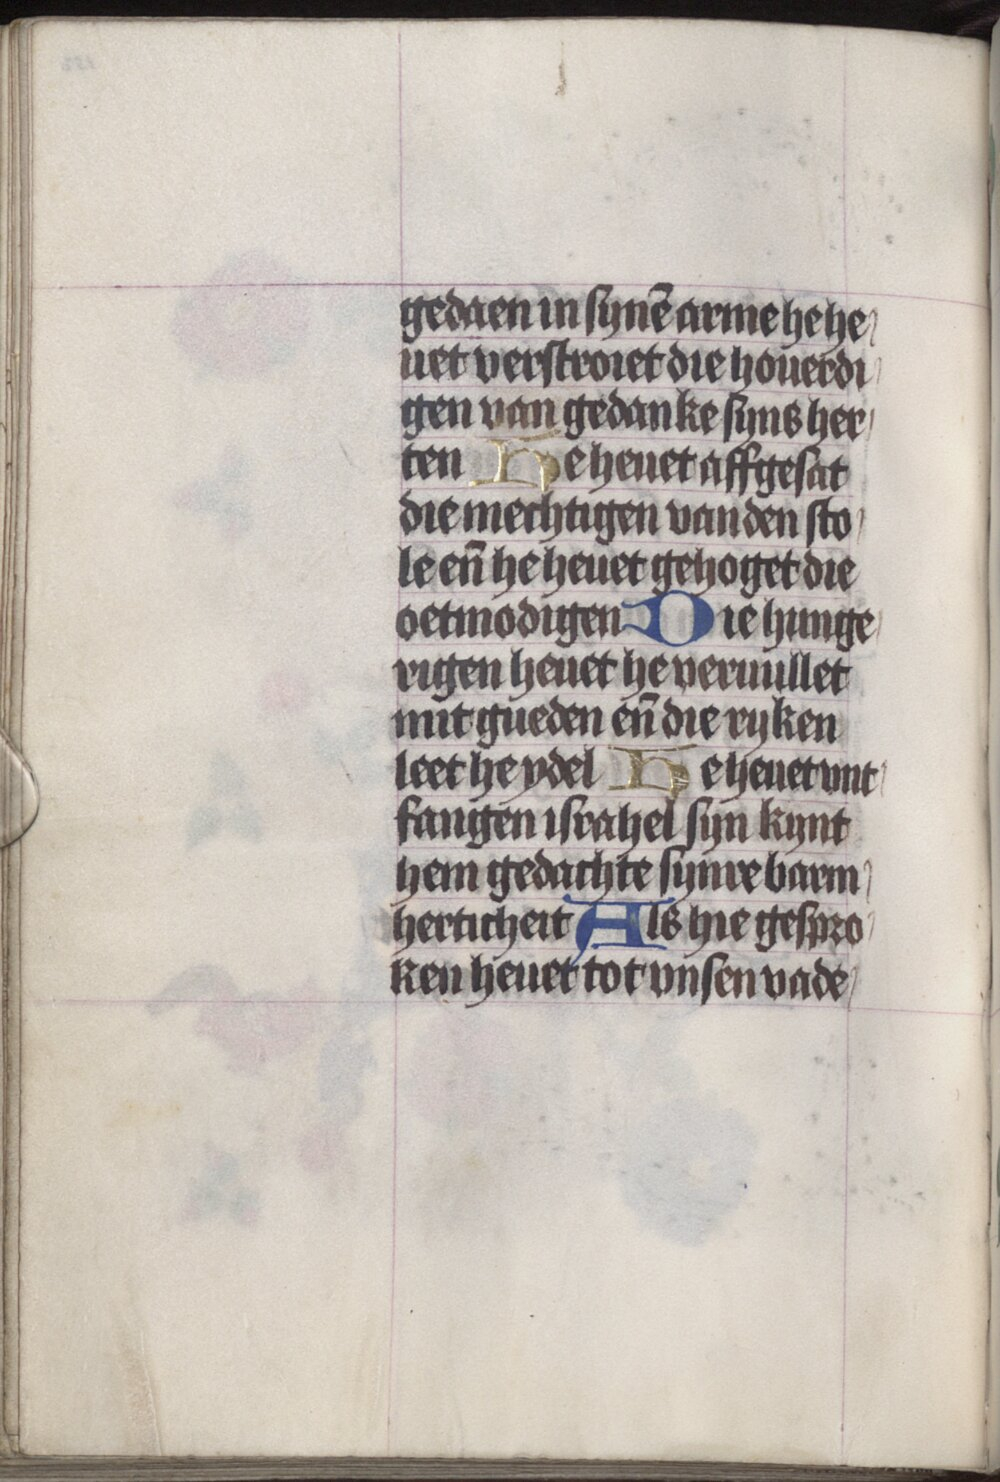 gedaen in synē arme he he
uet verstroiet die houerdi
gen van gedanke syns her
ten He heuet affgesat
die mechtigen van den sto
le en̄ he heuet gehoget die
oetmodigen Die hunge
rigen heuet he veruullet
mit gueden en̄ die ryken
leet he ydel He heuet vnt
fangen israhel syn kynt
hem gedachte synre barm
herticheit Als hie gespro
ken heuet tot vnsen vade